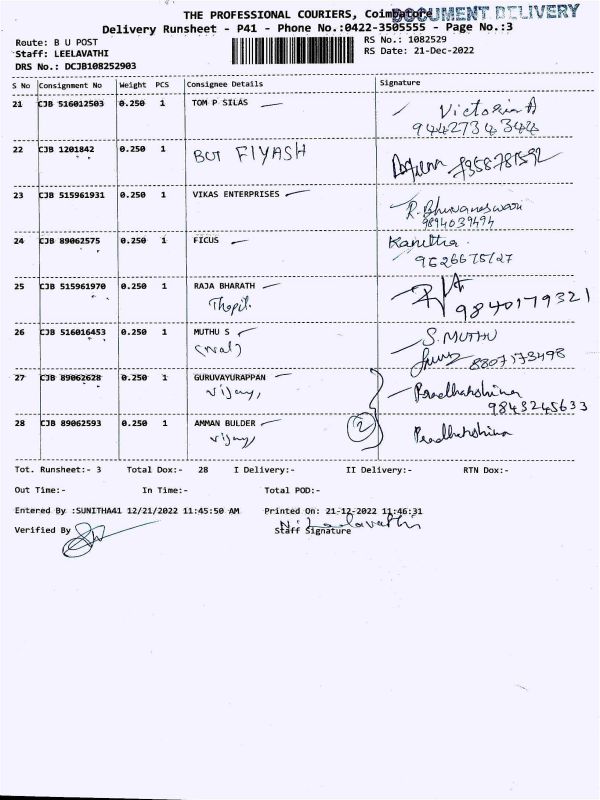 THE PROFESSIONAL COURIERS, Coimbatore
DOCUMENT DELIVERY
Delivery Runsheet - P41 - Phone No.:0422-3505555 - Page No.:3
Route: B U POST
RS No.: 1082529
Staff: LEELAVATHI
RS Date: 21-Dec-2022
DRS No.: DCJB108252903
S No Consignment No Weight PCS Consignee Details Signature
21 CJB 516012503 0.250 1 TOM P SILAS Victoria A
9442734344
22 CJB 1201842 0.250 1 BOT FIYASH 7358781592
23 CJB 515961931 0.250 1 VIKAS ENTERPRISES R. Bhuvaneswari
9894039494
24 CJB 89062575 0.250 1 FICUS Kavitha
9626675127
25 CJB 515961970 0.250 1 RAJA BHARATH
9840179321
26 CJB 516016453 0.250 1 MUTHU S S. MUTHU
8807173498
27 CJB 89062628 0.250 1 GURUVAYURAPPAN Pradhakshina
Vijay, 9843245633
28 CJB 89062593 0.250 1 AMMAN BULDER 2 Pradhakshina
Vijay,
Tot. Runsheet:- 3 Total Dox:- 28 I Delivery:- II Delivery:- RTN Dox:-
Out Time:- In Time:- Total POD:-
Entered By :SUNITHA41 12/21/2022 11:45:50 AM Printed On: 21-12-2022 11:46:31
Verified By Staff Signature